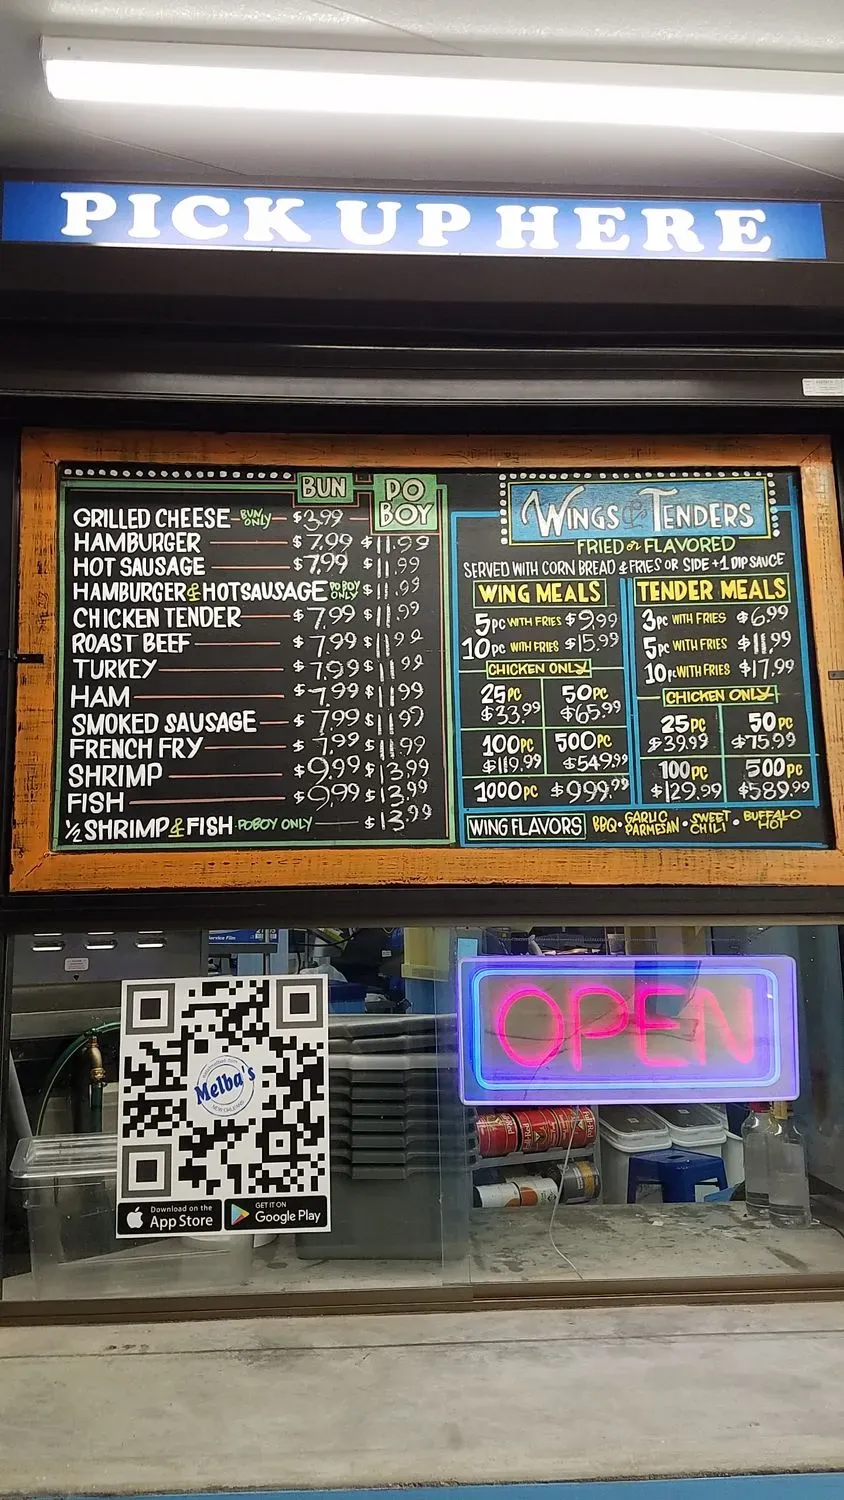 PICK UP HERE
BUN PO BOY
GRILLED CHEESE BUN ONLY $3.99
HAMBURGER $7.99 $11.99
HOT SAUSAGE $7.99 $11.99
HAMBURGER & HOTSAUSAGE PO BOY ONLY $11.99
CHICKEN TENDER $7.99 $11.99
ROAST BEEF $7.99 $11.99
TURKEY $7.99 $11.99
HAM $7.99 $11.99
SMOKED SAUSAGE $7.99 $11.99
FRENCH FRY $7.99 $11.99
SHRIMP $9.99 $13.99
FISH $9.99 $13.99
½ SHRIMP & FISH POBOY ONLY $13.99
WINGS & TENDERS
FRIED or FLAVORED
SERVED WITH CORN BREAD & FRIES OR SIDE + 1 DIP SAUCE
WING MEALS
5PC WITH FRIES $9.99
10PC WITH FRIES $15.99
CHICKEN ONLY
25PC 50PC
$33.99 $65.99
100PC 500PC
$119.99 $549.99
1000PC $999.99
TENDER MEALS
3PC WITH FRIES $6.99
5PC WITH FRIES $11.99
10PC WITH FRIES $17.99
CHICKEN ONLY
25PC 50PC
$39.99 $75.99
100PC 500PC
$129.99 $589.99
WING FLAVORS BBQ • GARLIC PARMESAN • SWEET CHILI • BUFFALO HOT
OPEN
Melba's
NEW ORLEANS
Download on the
App Store
GET IT ON
Google Play